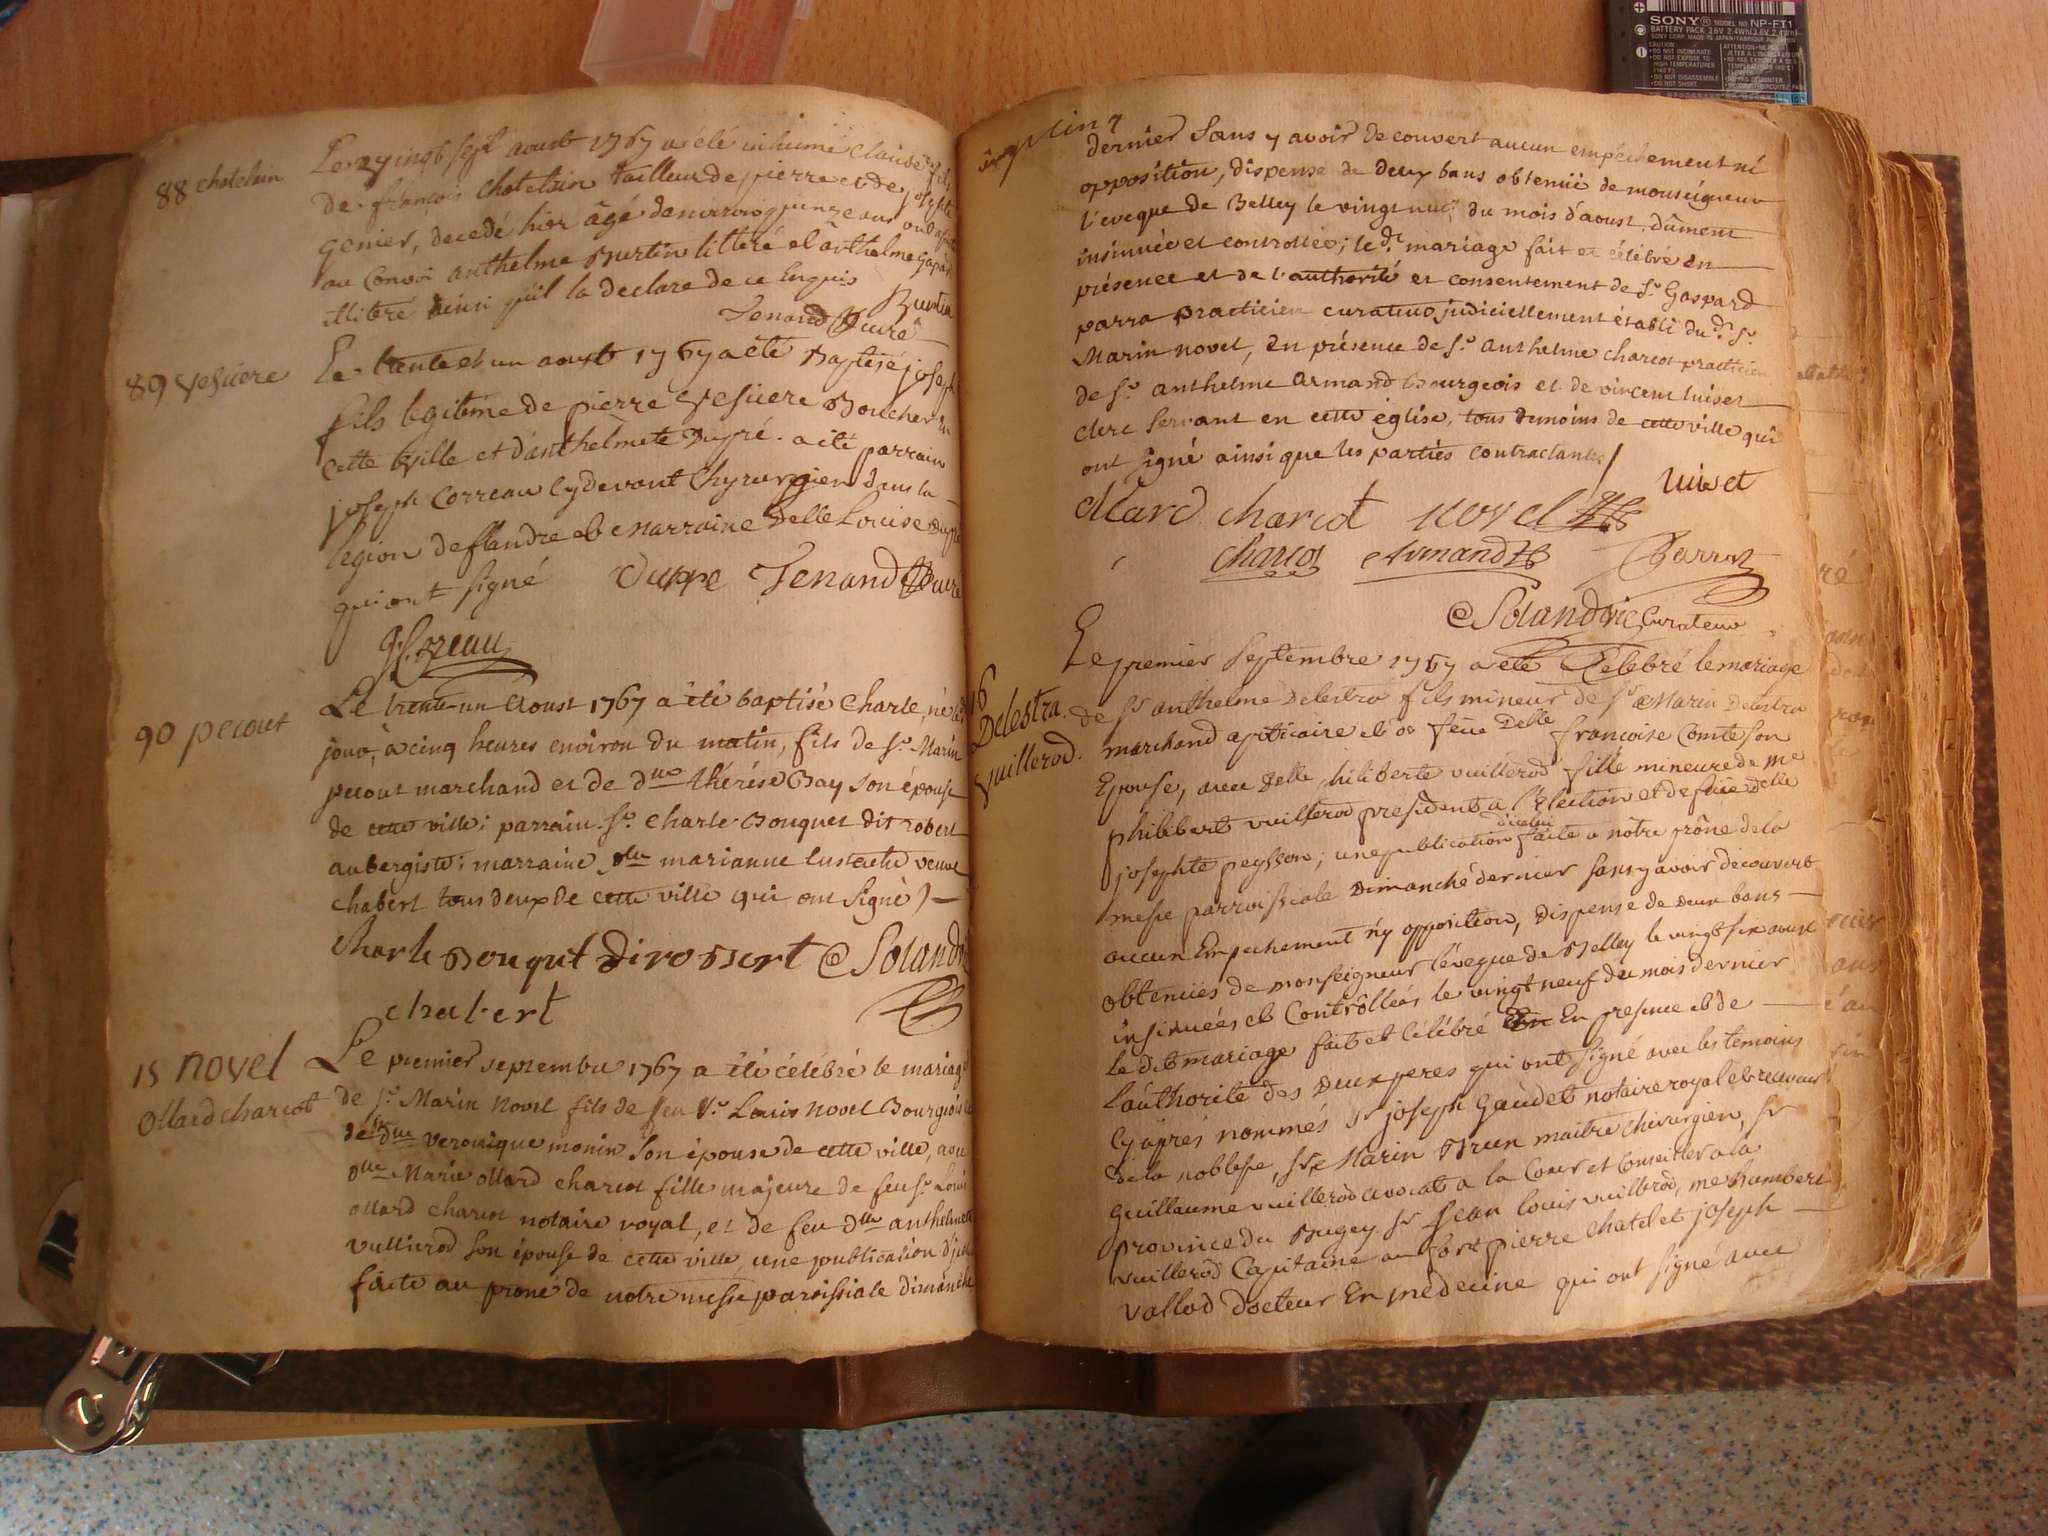 88 chatelain
Le vingt sept aoust 1767 a été inhumé claude fils
de françois chatelain tailleur de pierre et de josephte
genier, decedé hier âgé d'environ quinze ans
au convoi anthelme Burtin litteré et anthelme
illitéré ainsi qu'il la declaré de ce Enquis Burtin
Tenand Curé
89 vesuere
Le trente et un aoust 1767 a été Baptisé joseph
fils legitime de pierre vesuere Boucher en
cette ville et d'anthelmete Dupré. a été parrain
joseph correau cydevant Chyrurgien dans la
legion de flandre et marraine Delle Louise
qui ont signé Duppe Tenand Curé
90 perout
Le trente un aoust 1767 a été baptisé charle, né le dt
jour, à cinq heures environ du matin, fils de Sr. Marin
perout marchand et de dlle thérése Bay son épouse
de cette ville: parrain Sr. charle Bouquet dit robert
aubergiste: marraine dlle marianne Eustache veuve
chabert tous deux de cette ville qui ont signé
charle Bouqut diro Bert Solandrie
chabert
15 novel
ollard charcot
Le premier septembre 1767 a été célébré le mariage
de Sr. Marin Novel fils de feu Sr. Louis novel Bourgeois
de dlle veronique monin son épouse de cette ville, avec
dlle Marie ollard charcot fille majeure de feu Sr. Louis
ollard charcot notaire royal, et de feu dlle anthelmete
vullierod son épouse de cette ville, une publication
faite au prone de notre messe paroissiale dimanche
dernier sans y avoir decouvert aucun empêchement ni
opposition, dispense de deux bans obtenüe de monseigneur
l'eveque de Belley le vingt neuf du mois d'aoust, dûment
insinuée et controllée; le dt. mariage fait et célébré en
présence et de l'authorité et consentement de Sr. Gaspard
parra practicien curateur judiciellement établi du dt. Sr.
Marin novel, en présence de Sr. anthelme charcot practicien
de Sr. anthelme armand bourgeois et de vincent luiset
clerc servant en cette église, tous temoins de cette ville qui
ont signé ainsi que les parties contractantes
luiset
ollard charcot novel
charcot Armand Parra
Solandrie Curateur
16
Delestra.
Vuillerod.
Le premier septembre 1767 a été Celebré le mariage
de Sr anthelme Delestra fils mineur de Sr Marin Delestra
marchand apoticaire et de feüe Delle françoise Comte son
Epouse, avec Delle philiberte vuillerod fille mineure de me
philibert vuillerod president a l'Election et de feüe Delle
josephte peysson; une publication faite a nôtre prône de la
messe parroissiale Dimanche dernier sans y avoir decouvert
aucun Empechement n'y opposition, dispense de deux bans
obtenües de monseigneur l'évêque de Belley le vingt six aoust
insinuées et Controllées le vingt neuf du mois dernier
le dit mariage fait et célébré En presence et de
l'authorité des deux peres qui ont signé avec les temoins
cy après nommés Sr joseph Gaudet notaire royal et receveur
de la noblesse, Sr Marin Brun maitre chirurgien, Sr
guillaume vuillerod avocat a la Cour et Conseiller a la
province du Bugey Sr Jean Louis vuillerod, me humbert
vuillerod Capitaine au fort pierre chatel et joseph
vallod docteur En medecine qui ont signé avec
SONY MODEL NO. NP-FT1
BATTERY PACK 3.6V 2.4Wh